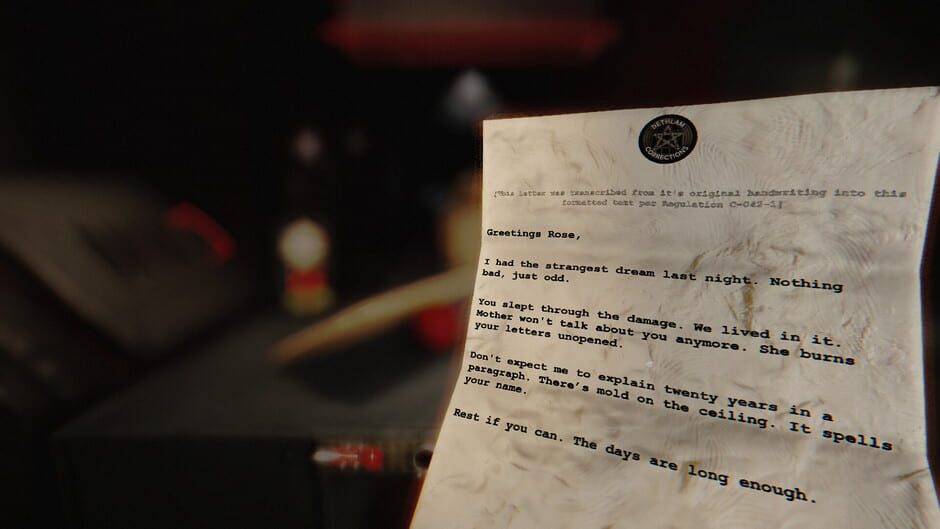 DETHLAM
CORRECTIONS
[This letter was transcribed from it's original handwriting into this
formatted text per Regulation C-042-1]
Greetings Rose,
I had the strangest dream last night. Nothing
bad, just odd.
You slept through the damage. We lived in it.
Mother won't talk about you anymore. She burns
your letters unopened.
Don't expect me to explain twenty years in a
paragraph. There's mold on the ceiling. It spells
your name.
Rest if you can. The days are long enough.